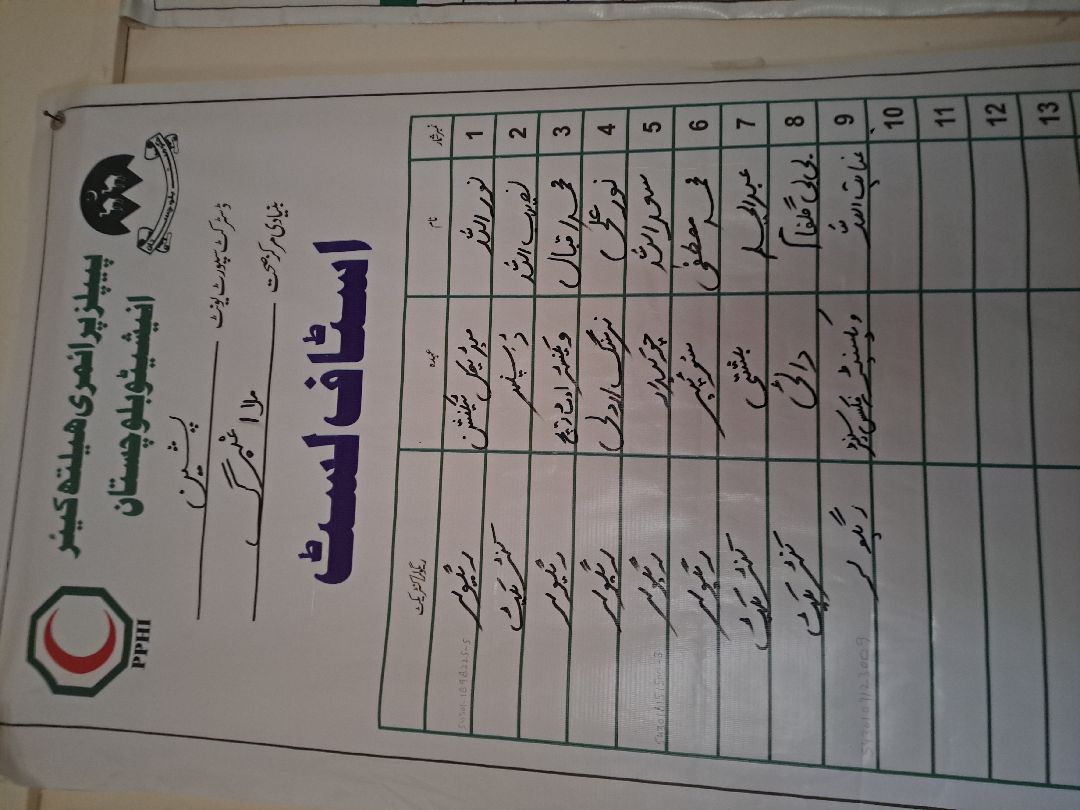 پیپلز پرائمری ہیلتھ کیئر
انیشیٹو بلوچستان
PPHI
ڈسٹرکٹ سپورٹ یونٹ پشین
بنیادی مرکز صحت ملا عنبر گی
اسٹاف لسٹ
نمبر شمار نام عہدہ ریگولر/کنٹریکٹ
1 نور اللہ میڈیکل ٹیکنیشن ریگولر
2 نصیب اللہ ڈسپنسر کنٹریکٹ
3 محمد اقبال ریگولر
4 نور علی نرسنگ اردلی ریگولر
5 سعد اللہ چوکیدار ریگولر
6 محمد مصطفی سوئیپر ریگولر
7 عبدالحلیم بہشتی کنٹریکٹ
8 بی بی گلفام دائی کنٹریکٹ
9 عنایت اللہ ریگولر
10
11
12
13